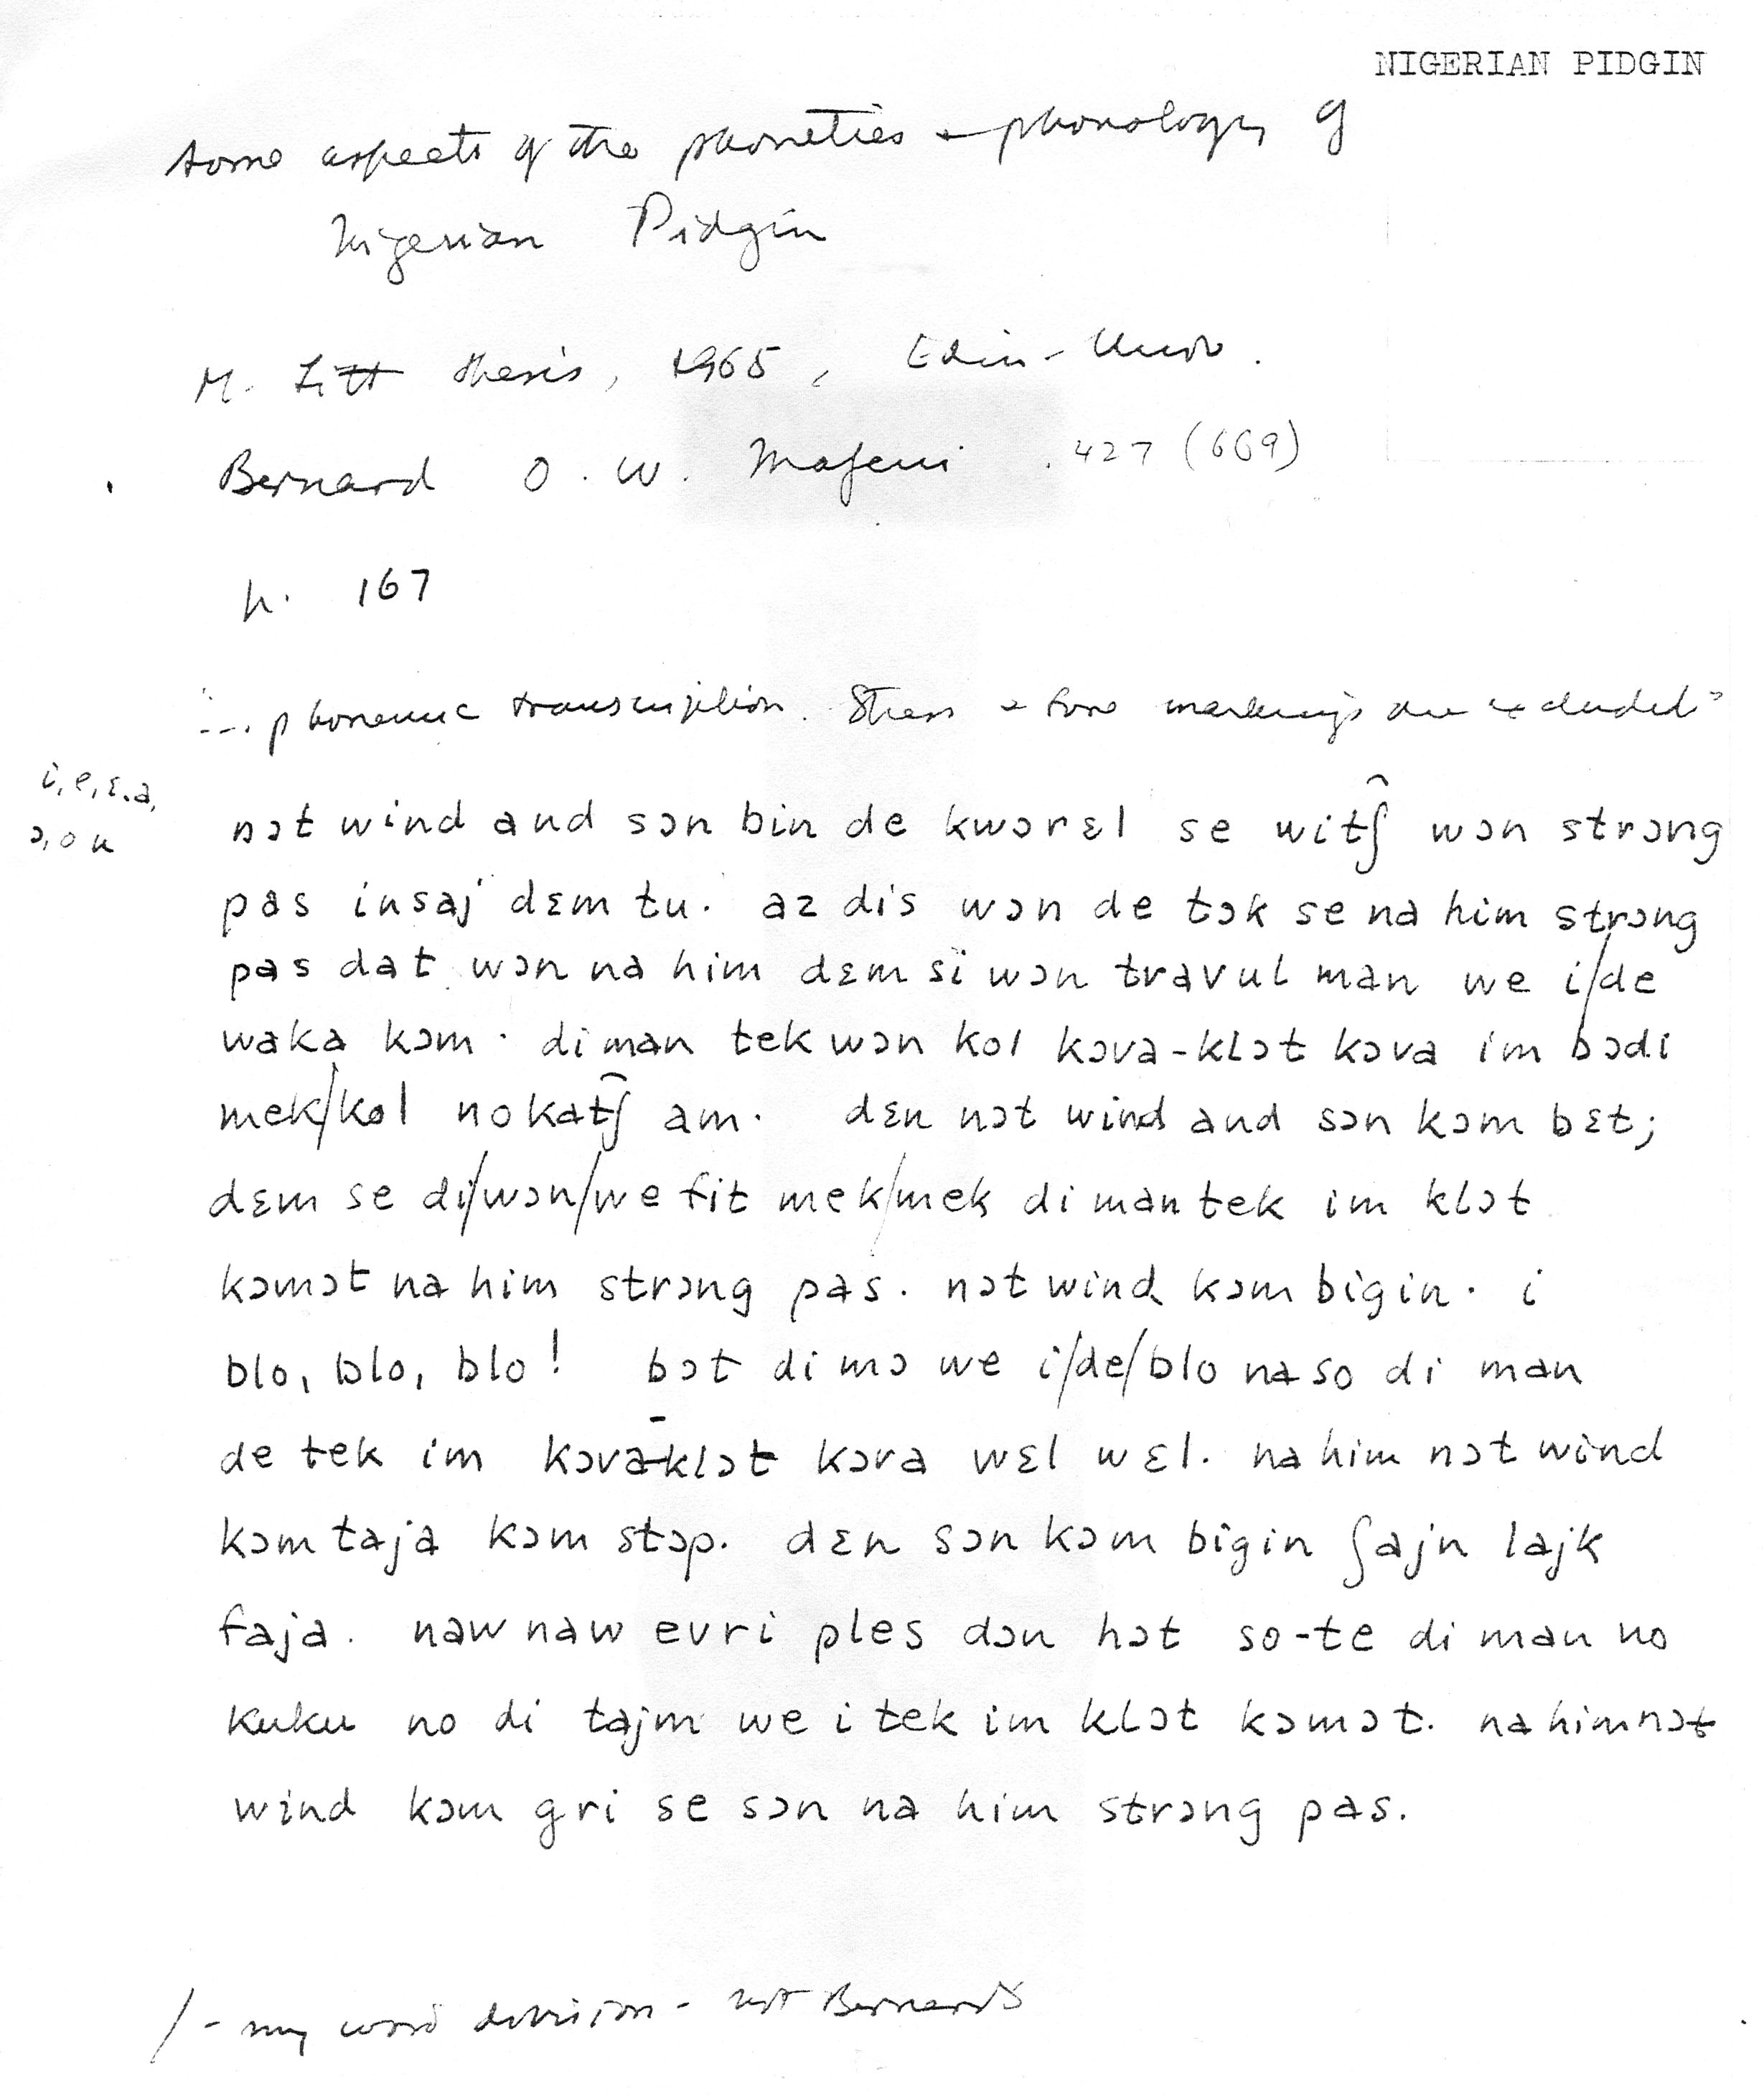 NIGERIAN PIDGIN
Some aspects of the phonetics + phonology of
Nigerian Pidgin
M. Litt thesis, 1965, Edin- Univ.
Bernard O. W. Mafeni . 427 (669)
p. 167
"... phonemic transcription. Stress + tone markings are excluded"
i, e, ɛ, a,
ɔ, o u
nɔt wind and sɔn bin de kwɔrɛl se wit͡ʃ wɔn strɔng
pas insaj dɛm tu. az dis wɔn de tɔk se na him strɔng
pas dat wɔn na him dɛm si wɔn travul man we i/de
waka kɔm. di man tek wɔn kol kɔva-klɔt kɔva im bɔdi
mek/kol no kat͡ʃ am. dɛn nɔt wind and sɔn kɔm bɛt;
dɛm se di/wɔn/we fit mek/mek di man tek im klɔt
kɔmɔt na him strɔng pas. nɔt wind kɔm bigin. i
blo, blo, blo! bɔt di mɔ we i/de/blo na so di man
de tek im kɔva-klɔt kɔva wɛl wɛl. na him nɔt wind
kɔm taja kɔm stɔp. dɛn sɔn kɔm bigin ʃajn lajk
faja. naw naw evri ples dɔn hɔt so-te di man no
kuku no di tajm we i tek im klɔt kɔmɔt. na him nɔt
wind kɔm gri se sɔn na him strɔng pas.
/ - my word division - not Bernard's